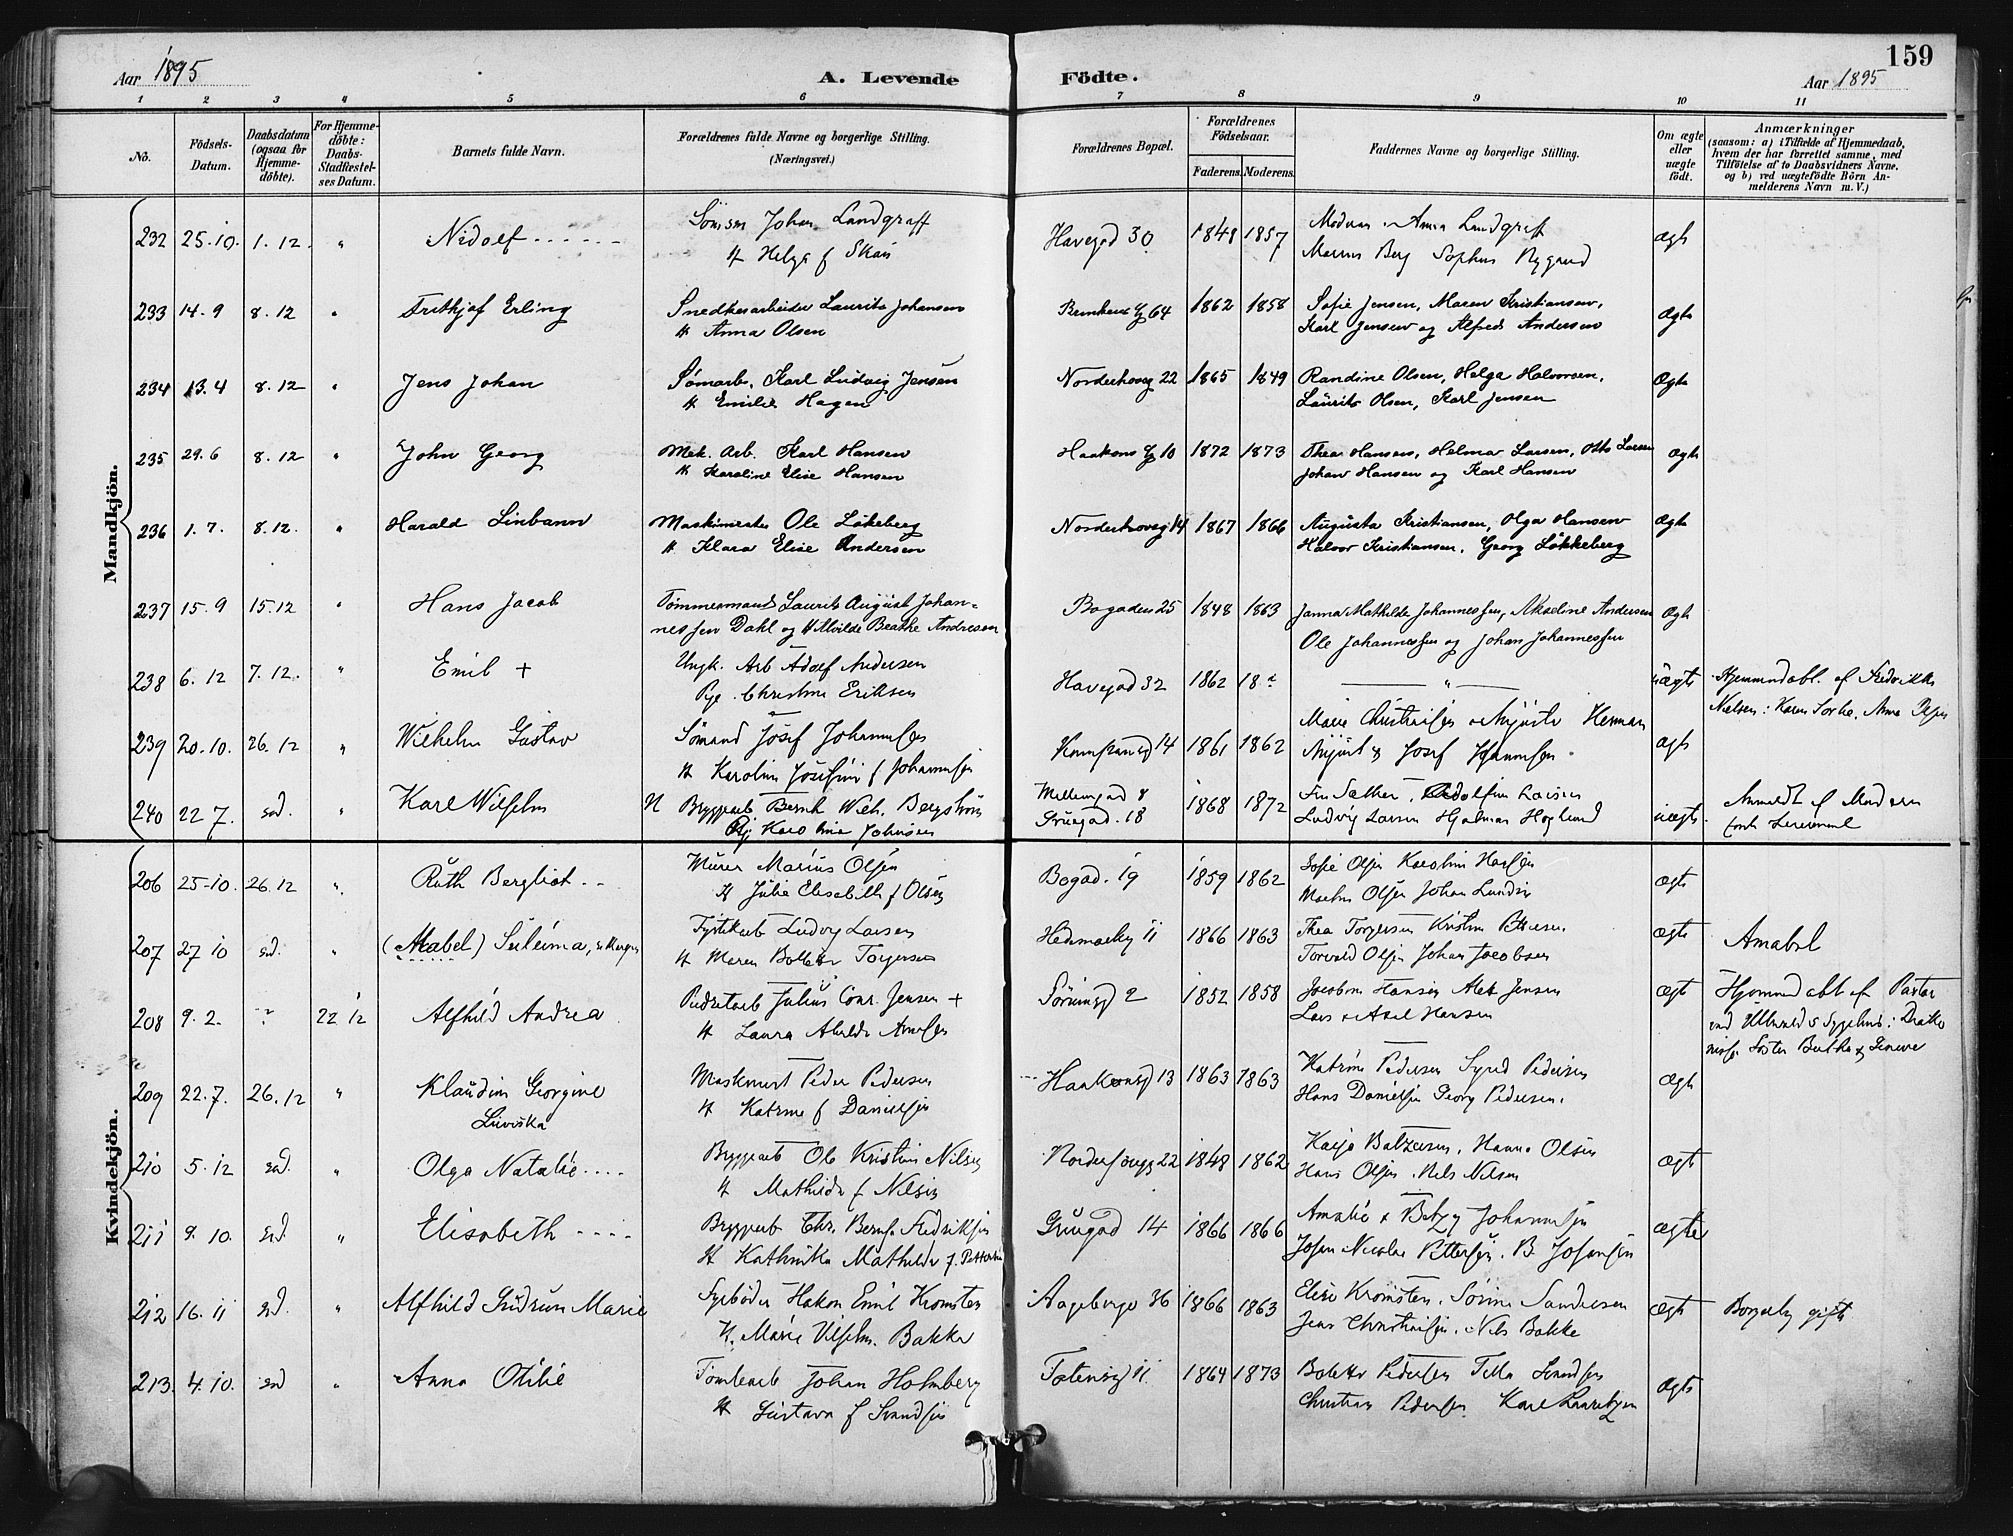 159
Aar 1895
A. Levende Födte.
Aar 1895
1 2 3 4 5 6 7 8 9 10 11
No.
Födsels-Datum.
Daabsdatum (ogsaa for Hjemme-döbte).
For Hjemme-döbte: Daabs-Stadfæstel-ses Datum.
Barnets fulde Navn.
Forældrenes fulde Navne og borgerlige Stilling.
(Næringsvei.)
Forældrenes Bopæl.
Forældrenes Födselsaar.
Faderens. Moderens.
Faddernes Navne og borgerlige Stilling.
Om ægte eller uægte födt.
Anmærkninger
(saasom: a) i Tilfælde af Hjemmedaab,
hvem der har forrettet samme, med
Tilföielse af to Daabsvidners Navne.
og b) ved uægtefödte Börn An-
melderens Navn m. V.)
Mandkjön.
232 25.10. 1.12. " Nidolf Johan Landgraff Havegad 30 1848 1857 Anna Landgraff ægt
H Helga f Skau Marius Berg Sophus Nygaard
233 14.9 8.12 " Fritkjof Erling Snedkerarbeider Laurits Johansen 64 1862 1858 Sofie Jensen, Maren Kristiansen, Ægte
H Anna Olsen Karl Jensen og Alfred Andersen
234 13.4 8.12 " Jens Johan Sømarb. Karl Ludvig Jensen Norderhovsg 22 1865 1849 Randine Olsen, Helga Halvorsen, Ægte
H Emilie Hagen Laurits Olsen, Karl Jensen
235 29.6 8.12 " John Georg Mek. Arb. Karl Hansen Haakons g 10 1872 1873 Thea Hansen, Helmar Larsen, Otto Larsen Ægte
H Karoline Elise Hansen Johan Hansen og Karl Hansen
236 1.7. 8.12. " Harald Linbann Maskinmester Ole Løkeberg Norderhovsg 14 1867 1866 Augusta Kristiansen, Olga Hansen Ægte
H Klara Elise Andersen Halvor Kristiansen, Georg Løkkeberg
237 15.9 15.12 " Hans Jacob Tømmermand Laurits August Johan- Bogaden 25 1848 1863 Janna Mathilde Johannessen, Nikoline Andersen Ægte
nessen Dahl og H Alvilde Beathe Andresen Ole Johannessen og Johan Johannessen
238 6.12 7.12. " Emil + Ungk. Arb Adolf Andersen Havegad 32 1862 18 ? " uægte Hjemmedøbt af Fredrikke
Pge. Christine Eriksen Nielsen: Karen Anna
239 20.10. 26.12 " Wilhelm Gustav Sømand Josef Johannessen 14 1861 1862 Marie Christensen Herman ægt
H Karoline Josefine f Johannesen August & Josef Johannessen
240 22 7. sed. " Karl Wilhelm Bryggearb Bernh Wilh. Bergstrøm Møllergad 8 1868 1872 Fru Sæther, Adolfine Larsen uægte Anmeldt af Moderen
Pig Karoline Johnsen Gruegad. 18 Ludvig Larsen Hjalmar Høglund
Kvindekjön.
206 25-10. 26.12 ". Ruth Bergliot Murer Marius Olsen Bogad. 19 1859 1862 Sofie Olsen Karoline ægte
H Julie Elisabeth f Olsen Olsen Johan Lundin
207 27 10 sd. " (Mabel) Ludvig Larsen Hedemarksg 11 1866 1863 Thea Torgersen Kristine Pettersen ægte Amabel
H Maren Bolette Torgersen Torvald Olsen Johan Jacobsen
208 9.2. ? 22 12 Alfhild Andrea Julius Conr. Jensen + 2 1852 1858 Jacobine Hansen Jensen ægte Hjemmedøbt af Pastor
H Laura Lars & Axel Hansen ved Ullevaals Sygehus: Diako
nisse Søster Bertha &
209 22.7. 26.12 " Klaudine Georgine Peder Pedersen Haakonsg 13 1863 1863 Katrine Pedersen Pedersen Ægte
H Katrine f Danielsen Hans Danielsen Georg Pedersen.
210 5.12 sd. " Olga Natalie Bryggearb Ole Kristian Nilsen 22 1848 1862 Kaja Baltzersen, Hanna Olsen ægt
H Mathilde f Nilsen Hans Olsen, Nils Nilsen
211 9.10. sd. " Elisabeth Bryggearb Chr. Bernh Fredriksen Gruegad 14 1866 1866 Amalie & Betzy Johannesen ægte
H Kathinka Mathilde f. Pettersen Johan Nicolai Pettersen. B Johansen
212 16.11 sd. " Alfhild Gudrun Marie Fyrbøder Hakon Emil Kromsten Aagebergv 36 1866 1863 Elise Kromsten. Sørine Sandersen ægte Borgerlig gift
H. Marie Vilhelm. Bakke Jens Christensen. Nils Bakke
213. 4.10. sed " Anna Otilie Tømtearb Johan Holmberg Totensg 11. 1864 1873 Bolette Pedersen Tilla Svendsen Ægte
H Gustava f Svendsen Christian Pedersen. Karl Lauritzen